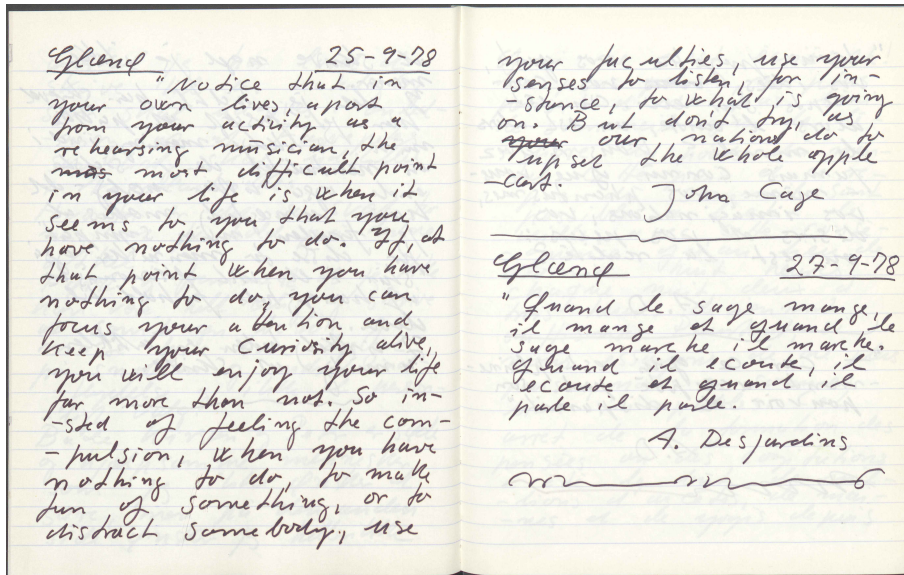 Gland 25-9-78
"Notice that in
your own lives, apart
from your activity as a
rehearsing musician, the
most difficult point
in your life is when it
seems to you that you
have nothing to do. If, at
that point when you have
nothing to do, you can
focus your attention, and
keep your curiosity alive,
you will enjoy your life
far more than not. So in-
-sted of feeling the com-
-pulsion, when you have
nothing to do, to make
fun of something, or to
distract somebody, use
your faculties, use your
senses to listen, for in-
-stance, to what is going
on. But don't try, as
our nations do to
upset the whole apple
-cart.
John Cage
Gland 27-9-78
"Quand le sage mange,
il mange et quand le
sage marche il marche.
quand il ecoute, il
ecoute et quand il
parle il parle.
A. Desjardins